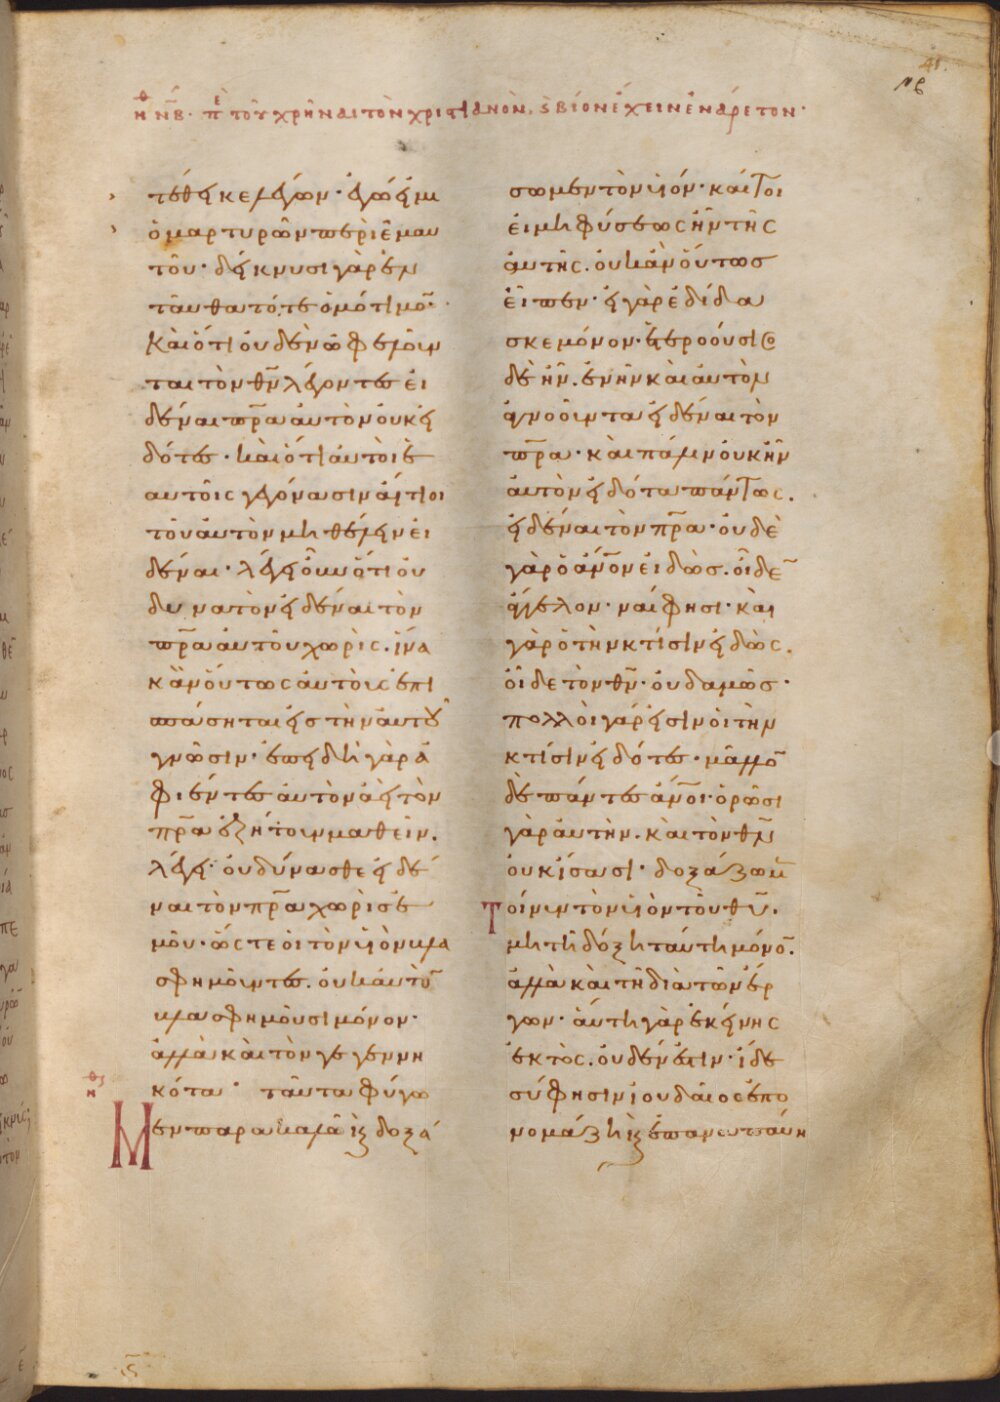 ἠθ νβ· πε τοῦ χρῆναι τὸν χριστιανὸν, ϗ βίον ἔχειν ἐνάρετον·
τέθεικε λέγων· ἐγώ εἰμι
ὁ μαρτυρῶν περὶ ἐμαυ
τοῦ· δείκνυσι γὰρ ἐν
ταῦθα τό, τε ὁμότιμο̅·
Καὶ ὅτι οὐδὲν ὠφελοῦν
ται τὸν θ̅ν̅ λέγοντες εἰ
δέναι π̅ρ̅α̅ αὐτὸν οὐκ εἰ
δότες· καὶ ὅτι αὐτοὶ ἑ
αυτοῖς γεγόνασιν αἴτιοι
τοῦ αὐτὸν μὴ θέλειν εἰ
δέναι· λέγει οὖν ὅτι οὐ
δυνατὸν εἰδέναι τὸν
π̅ρ̅α̅ αὐτοῦ χωρὶς. ἵνα
κἂν οὕτως αὐτοὺς ἐπι
σπάσηται εἰς τὴν αὐτοῦ
γνῶσιν· ἐπειδὴ γὰρ ἀ
φιέντες αὐτὸν ἀεὶ τὸν
π̅ρ̅α̅ ἐζήτουν μαθεῖν.
λέγει· οὐ δύνασθε εἰδέ
ναι τὸν π̅ρ̅α̅ χωρὶς ἐ
μοῦ· ὥστε οἱ τὸν υἱὸν βλα
σφημοῦντες. οὐκ αὐτὸ̅
βλασφημοῦσι μόνον·
ἀλλὰ καὶ τὸν γεγεννη
κότα· ταῦτα φύγω
Μεν παρακαλῶ ϗ δοξά
σωμεν τὸν υἱόν· καίτοι
εἰ μὴ φύσεως ἦν τῆς
αὐτῆς. οὐκ ἂν οὕτως
εἶπεν· εἰ γὰρ ἐδίδα
σκε μόνον· ἑτεροούσιος
δὲ ἦν. ἐνῆν καὶ αὐτὸν
ἀγνοοῦντα εἰδέναι τὸν
π̅ρ̅α̅· καὶ πάλιν οὐκ ἦν
αὐτὸν εἰδότα πάντως.
εἰδέναι τὸν π̅ρ̅α̅· οὐδὲ
γὰρ ὁ ἄ̅ν̅ο̅ν̅ εἰδὼς. οἶδε̅
ἄγγελον· ναί φησι· καὶ
γὰρ ὁ τὴν κτίσιν εἰδὼς.
οἶδε τὸν θ̅ν̅· οὐδαμῶς·
πολλοὶ γάρ εἰσιν οἱ τὴν
κτίσιν εἰδότες· μᾶλλο̅
δὲ πάντες ἄ̅ν̅ο̅ι̅· ὁρῶσι
γὰρ αὐτὴν. καὶ τὸν θ̅ν̅
οὐκ ἴσασι· δοξάζωμ̅
Τοίνυν τὸν υἱὸν τοῦ θ̅υ̅.
μὴ τῆ δόξη ταύτη μόνο̅.
ἀλλὰ καὶ τῆ διὰ τῶν ἔρ
γων· αὕτη γὰρ ἐκείνης
ἐκτὸς. οὐδέν ἐστιν· ἴδε
σύ φησιν ἰουδαῖος ἐπο
νομάζη ϗ ἐπαναπαύη